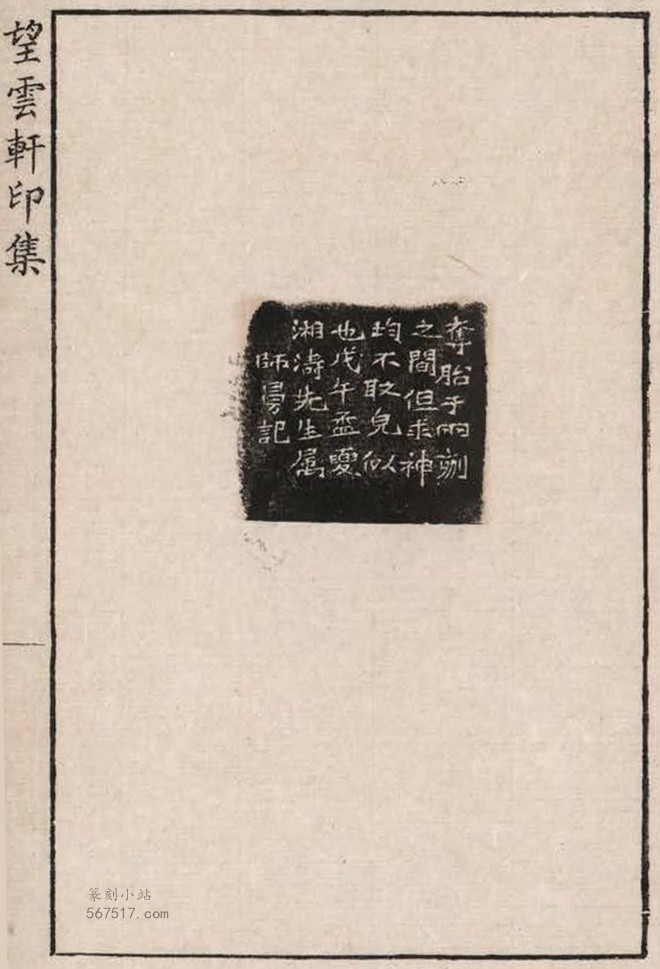 望雲軒印集
奪胎于兩漢
之間但求神
均不取皃似
也戊午孟夏
湘濤先生屬
師曼記
篆刻小站
567517.com